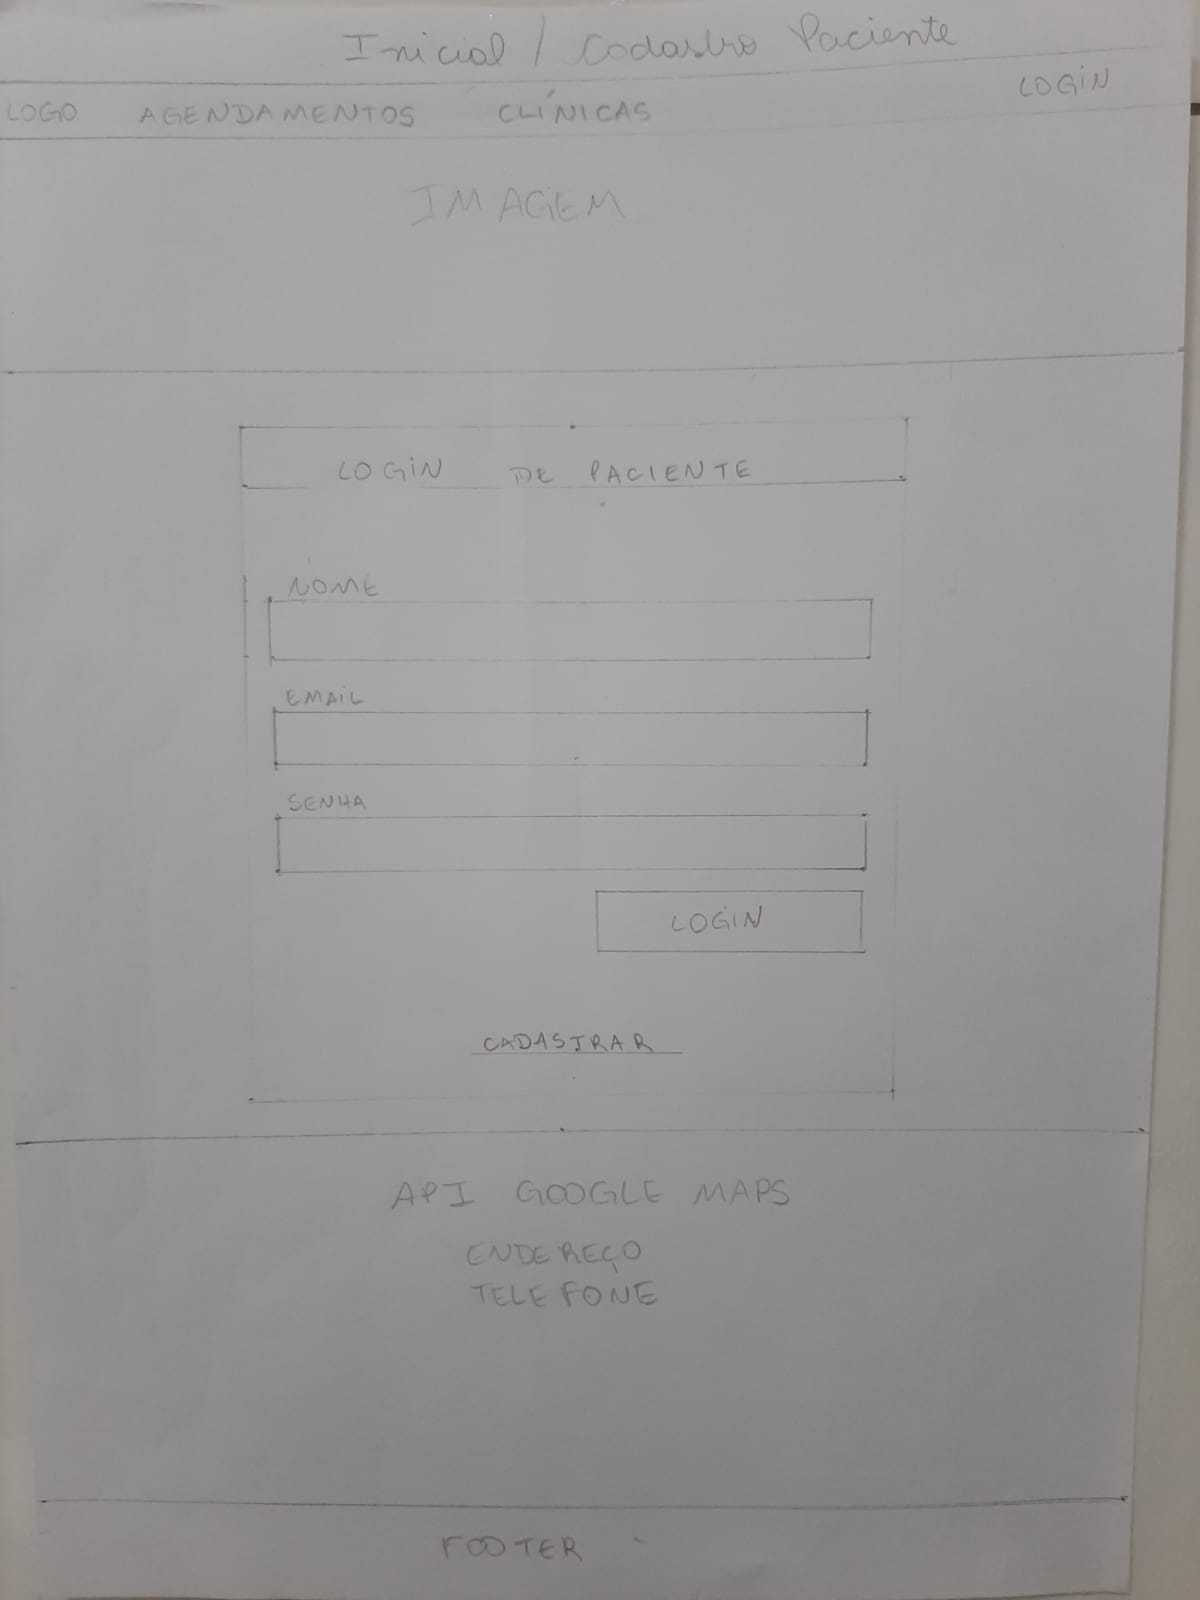 Inicial / Cadastro Paciente
LOGO AGENDAMENTOS CLÍNICAS LOGIN
IMAGEM
LOGIN DE PACIENTE
NOME
EMAIL
SENHA
LOGIN
CADASTRAR
API GOOGLE MAPS
ENDEREÇO
TELEFONE
FOOTER